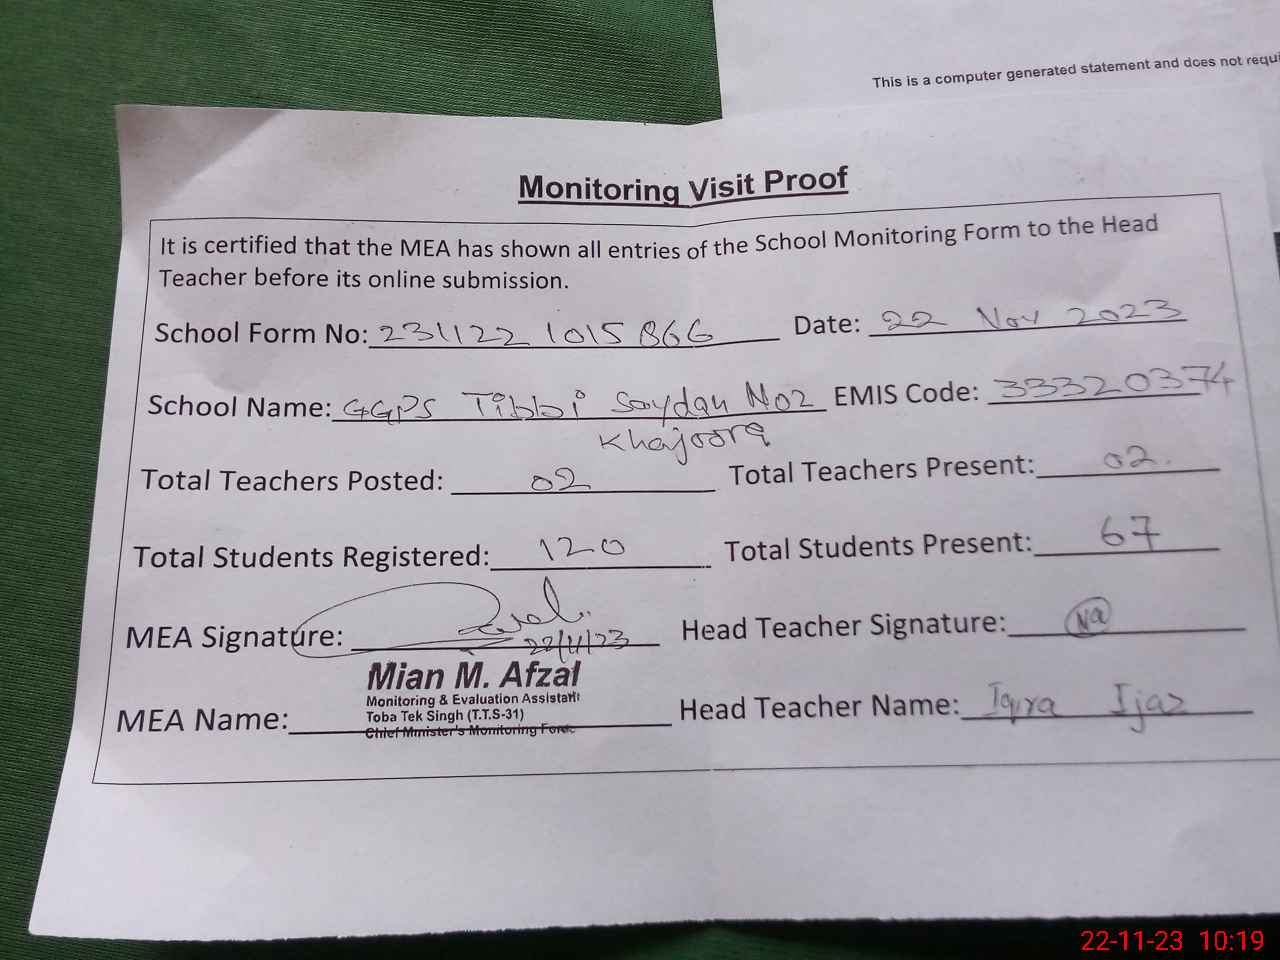 This is a computer generated statement and does not requi
Monitoring Visit Proof
It is certified that the MEA has shown all entries of the School Monitoring Form to the Head
Teacher before its online submission.
School Form No: 231122 1015 866 Date: 22 Nov 2023
School Name: GGPS Tibbi Saydan No2 EMIS Code: 33320374
Khajoora
Total Teachers Posted: 02 Total Teachers Present: 02.
Total Students Registered: 120 Total Students Present: 67
MEA Signature: 22/11/23 Head Teacher Signature:
Mian M. Afzal
Monitoring & Evaluation Assistant
Toba Tek Singh (T.T.S-31)
Chief Minister's Monitoring Force
MEA Name: Head Teacher Name: Iqra Ijaz
22-11-23 10:19